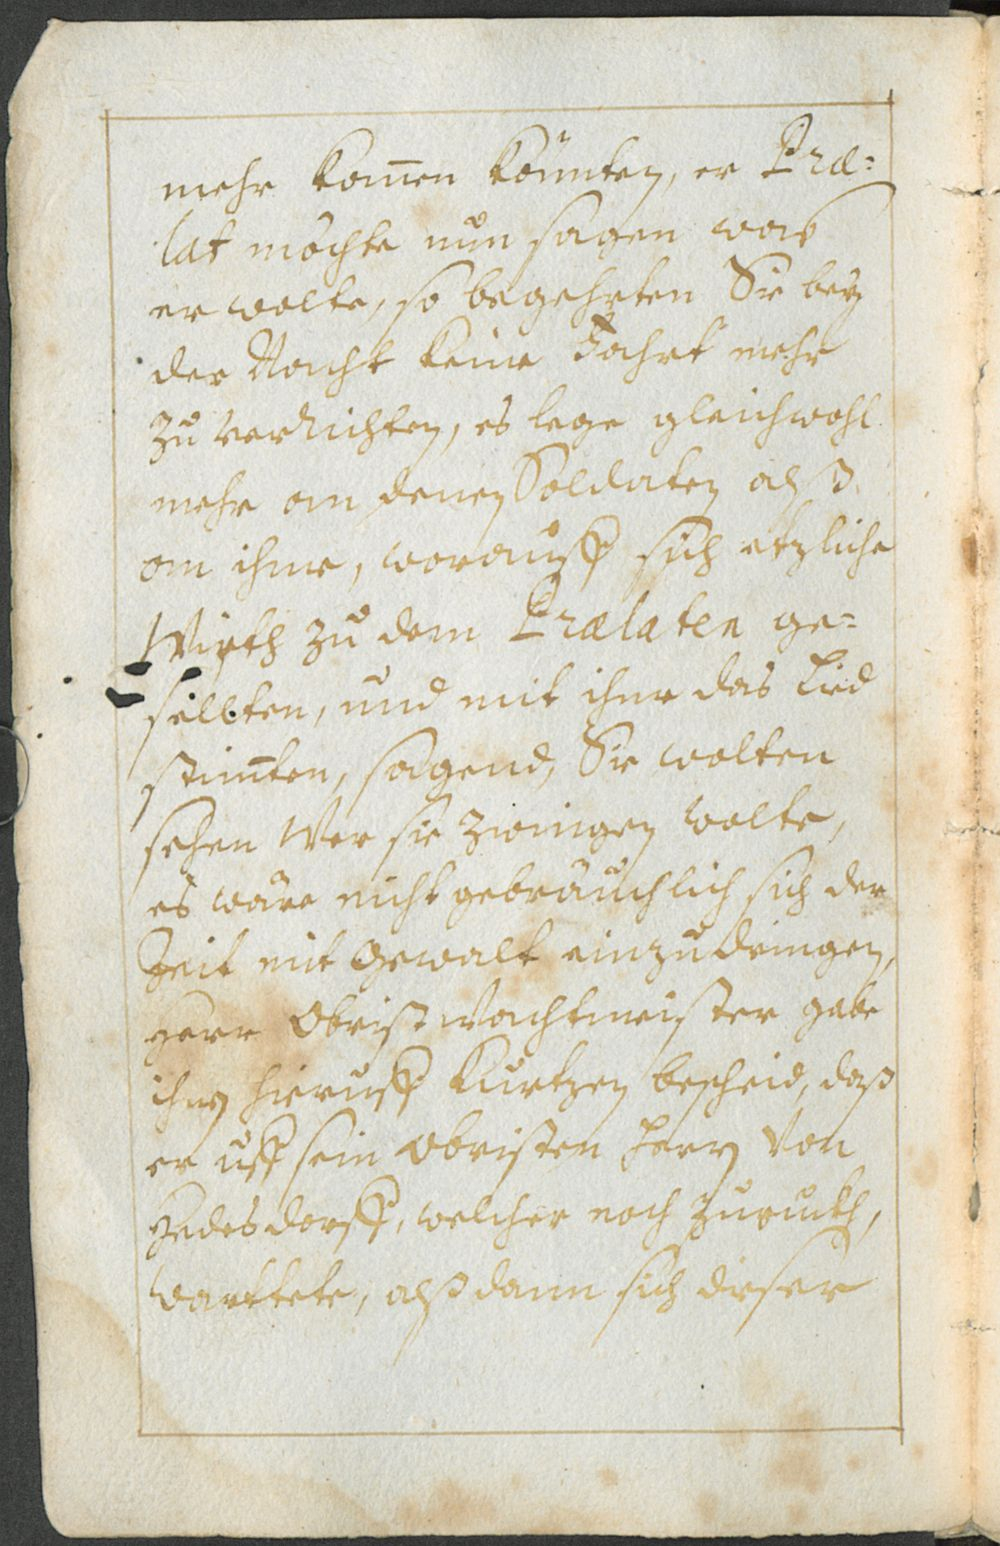 mehr kom̄en könnten, er Præ=
lat möchte nun sagen was
er wolte, so begehrten Sie bey
der Nacht keine Fahrt mehr
zu verrichten, es lege gleichwohl
mehr an denen Soldaten alß
an ihme, worauff sich etzliche
Wirth zu dem Prælaten ge=
sellten, und mit ihme das Lied
stim̄ten, sagend, Sie wolten
sehen wer sie zwingen wolte,
es wäre nicht gebräuchlich sich der
Zeit mit Gewalt einzudringen,
Herr Obrist Wachtmeister gabe
ihnen hierauff kurtzen bescheid, daß
er uff sein Obristen Herrn von
Hedesdorff, welcher noch zuruckh,
warttete, alßdann sich dieser